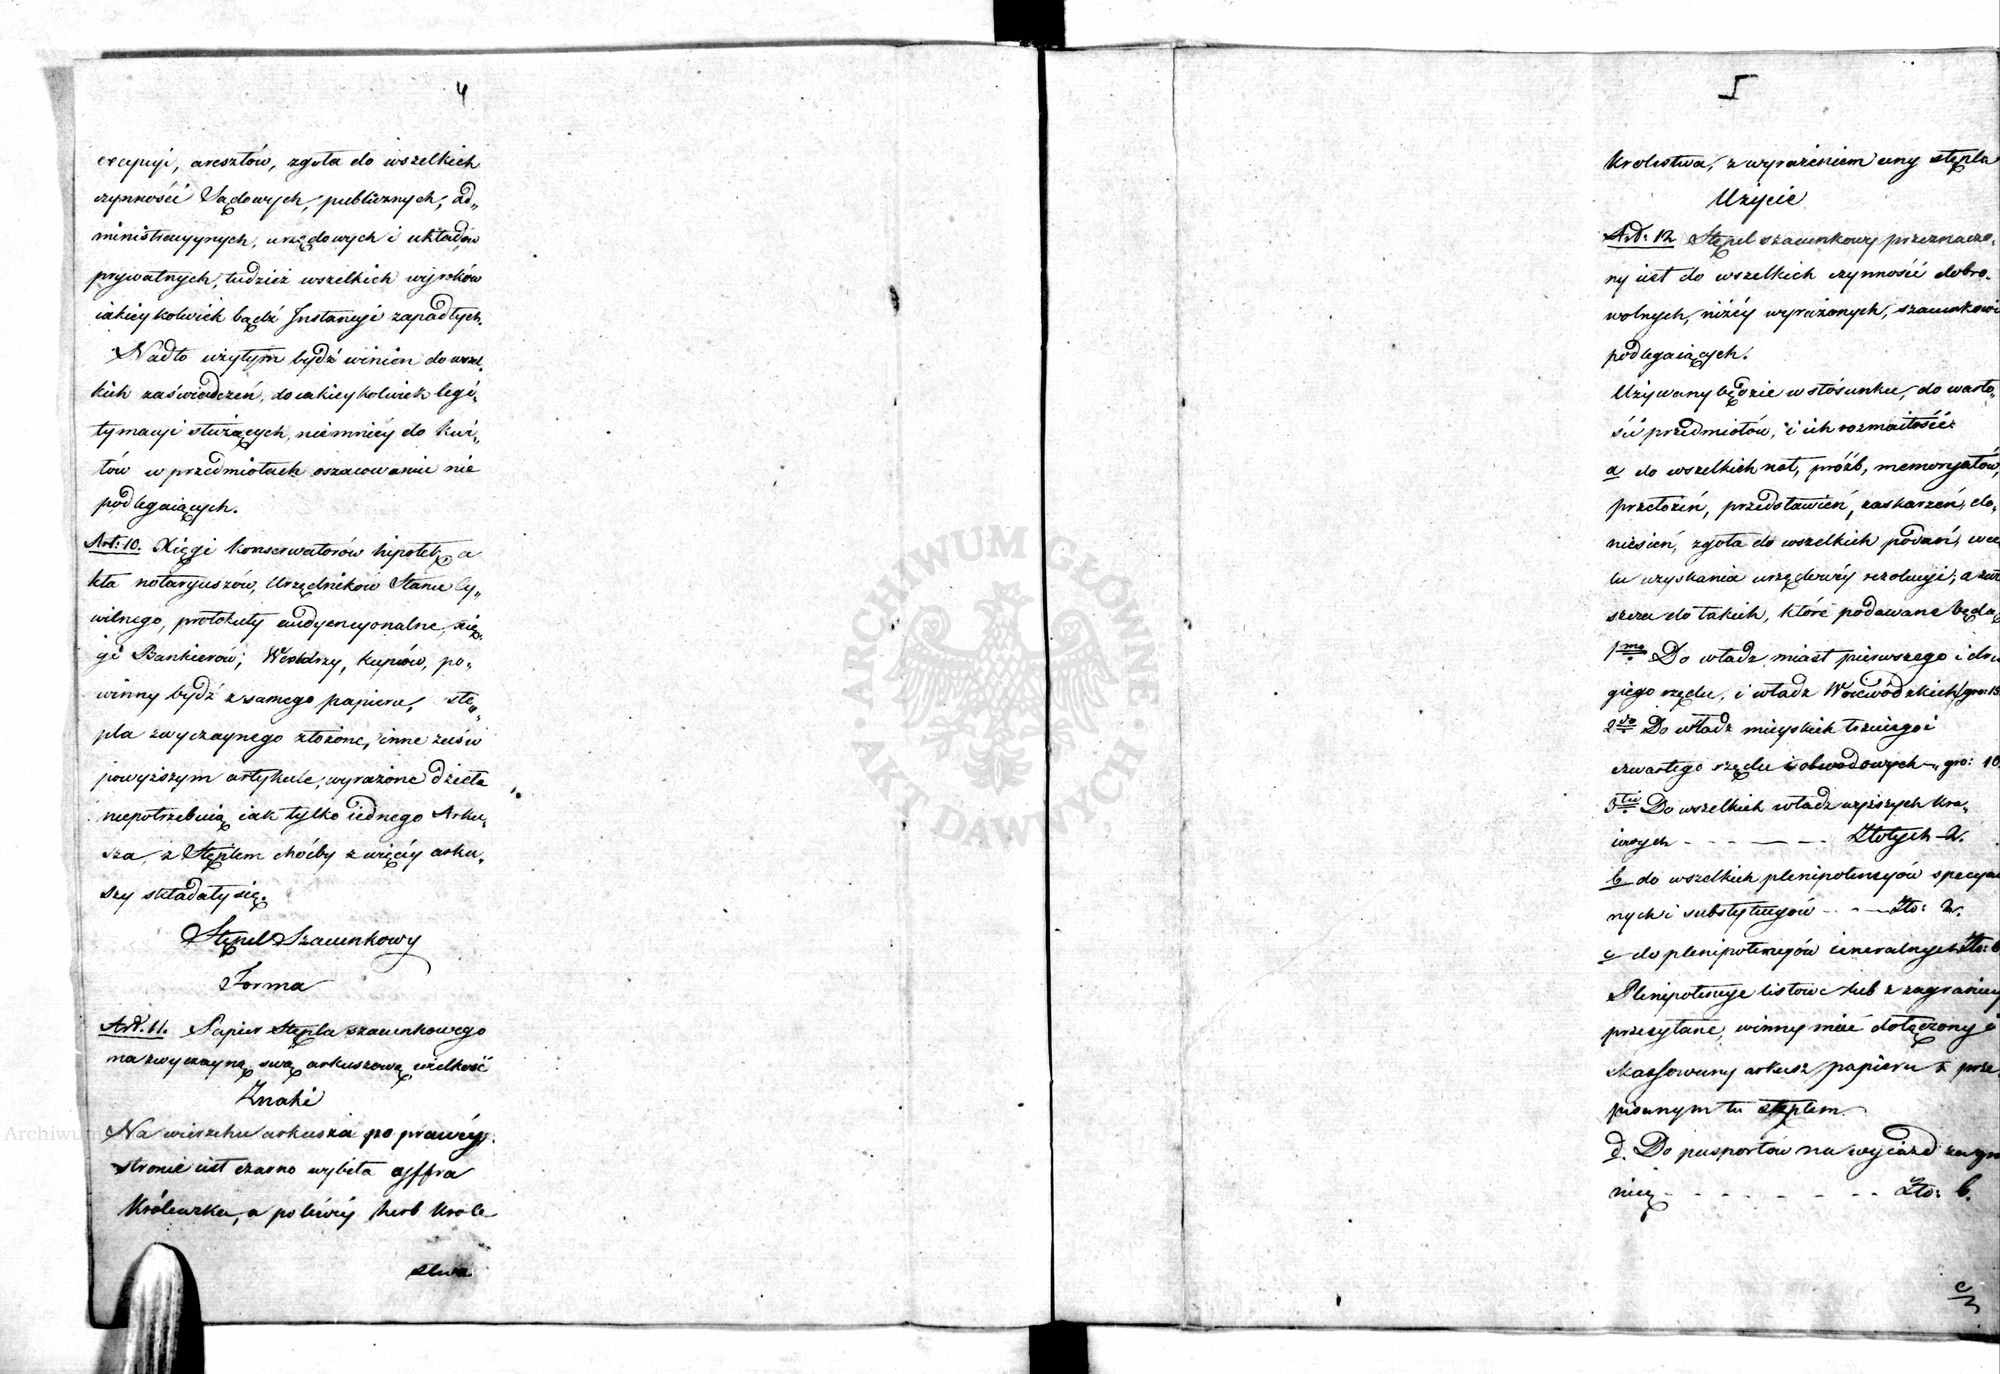 4
execucyi, aresztów, zgoła do wszelkich
czynności Sądowych, publicznych, ad„
ministracyynych, urzędowych i układów
prywatnych, tudzież wszelkich wyroków
iakieykolwiek bądź Instancyi zapadłych.
Nadto użytym bydź winien do wszel„
kich zaświadczeń, do iakieykolwiek legi„
tymacyi służących, niemniey do kwi„
tów w przedmiotach oszacowaniu nie
podlegaiących.
Art: 10. Xięgi konserwatorów hipotek, a
kta notaryuszów, Urzędników Stanu Cy„
wilnego, protokuły audyencyonalne, xię„
gi Bankierów, kupców, po„
winny bydź z samego papieru, stę„
pla zwyczaynego złożone, inne zaś w
powyższym artykule, wyrażone dzieła
niepotrzebuią iak tylko iednego Arku„
sza, z Stęplem choćby z więcéy arku„
szy składały się.
Stępel Szacunkowy
Forma
Art. 11. Papier Stępla szacunkowego
ma zwyczayną swą arkuszową wielkość
Znaki
Na wierzchu arkusza po prawéy
stronie iest czarno wybita cyffra
Królewska, a po léwéy herb Króle
stwa
5
Krolestwa, z wyrażeniem ceny stępla
Użycie
Art: 12 Stępel szacunkowy przeznaczo„
ny iest do wszelkich czynności dobro„
wolnych, niżéy wyrażonych, szacunkowi
podlegaiących.
Używany będzie w stósunku, do warto„
ści przedmiotów, i ich rozmaitości:
a do wszelkich not, próźb, memoryałów,
przełożeń, przedstawień, zaskarżeń, do„
niesień, zgoła do wszelkich podań, w ce
lu uzyskania urzędowéy rezolucyi, a zwł
szcza do takich, które podawane będą
1mo Do władz miast pierwszego i dru
giego rzędu, i władz Woiewódzkich gro: 15
2do Do władz mieyskich trzeciego i
czwartego rzędu i obwodowych „ gro: 10
3tio Do wszelkich władz wyższych kra„
iowych - - - - - Złotych 2.
b do wszelkich plenipotencyów specyal
nych i substytucyów - - - Zło: 2.
c do plenipotencyów ieneralnych Zło: 6
Plenipotencye listowe lub z zagranicy
przesyłane, winny mieć dołączony i
skassowany arkusz papieru z prze„
pisanym tu stęplem.
d. Do paszportów na wyiazd za gra
nicę - - - - - - Zło: 6.
ARCHIWUM GŁÓWNE
AKT DAWNYCH